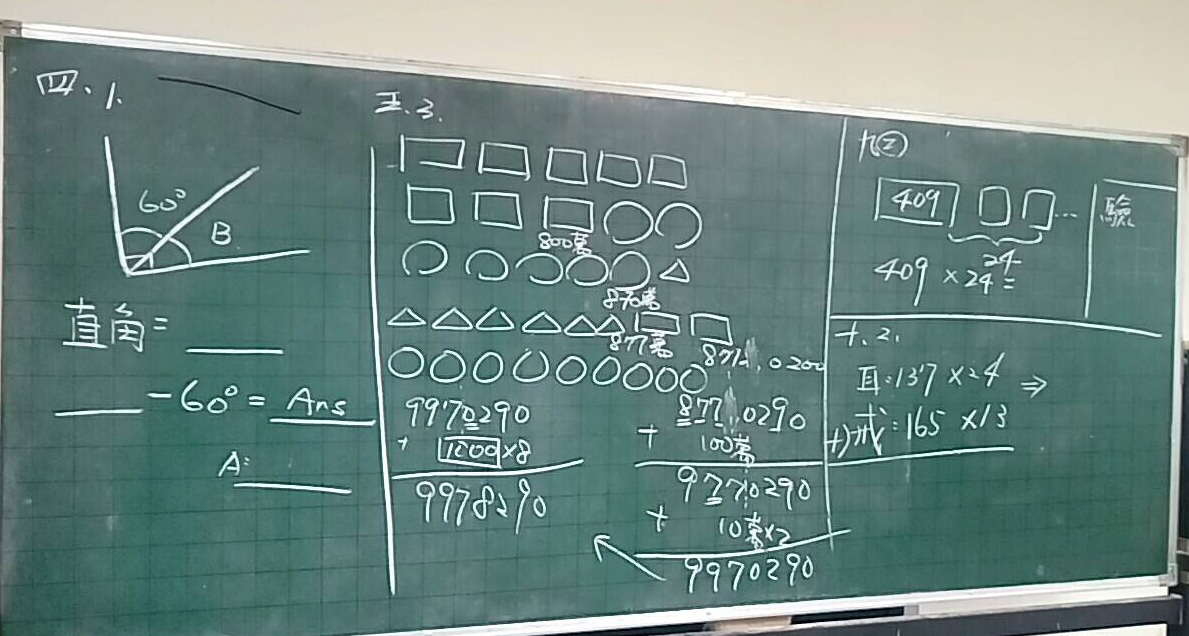 四、1.
60°
B
直角=
-60°= Ans
A:
五.3.
800萬
870萬
877萬
9970290
+ 1000×8
9978290
+ 100萬
9770290
+ 10萬×2
9970290
九②
409 ...
24
409 × 24 =
驗
十.2.
耳:137 ×24 ⇒
+)戒:165 ×13